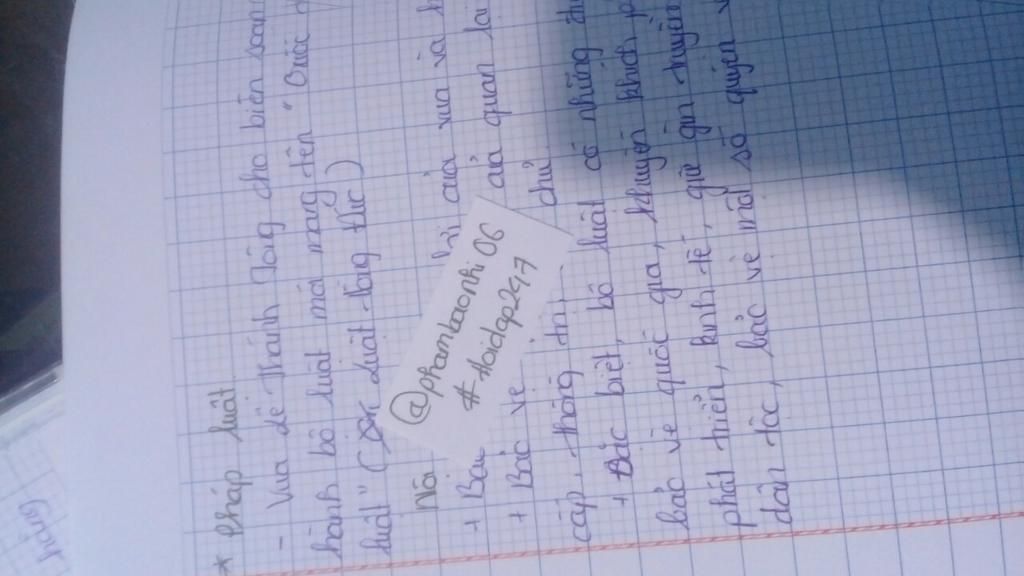 * Pháp luật
- Vua Lê Thánh Tông cho biên soạn
hành bộ luật mới mang tên "Quốc
luật" (luật Hồng Đức)
Nội của vua và
+ Bảo vệ của quan lại
cấp thống trị, chủ
+ Đặc biệt, bộ luật có những
bảo vệ quốc gia, khuyến khích
phát triển, kinh tế, giữ gìn truyền
dân tộc, bảo vệ một số quyền
@phambaonhi06
#hoidap247
hàng